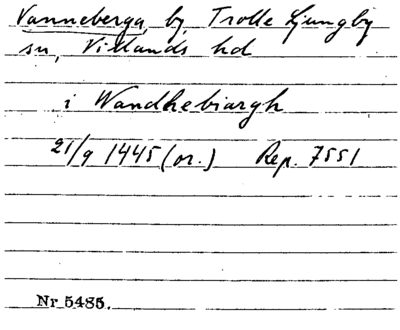 Vanneberga, by, Trolle Ljungby
sn, Villands hd
i Wandhebiargh
21/9 1445 (or.) Rep. 7551
Nr 5485.